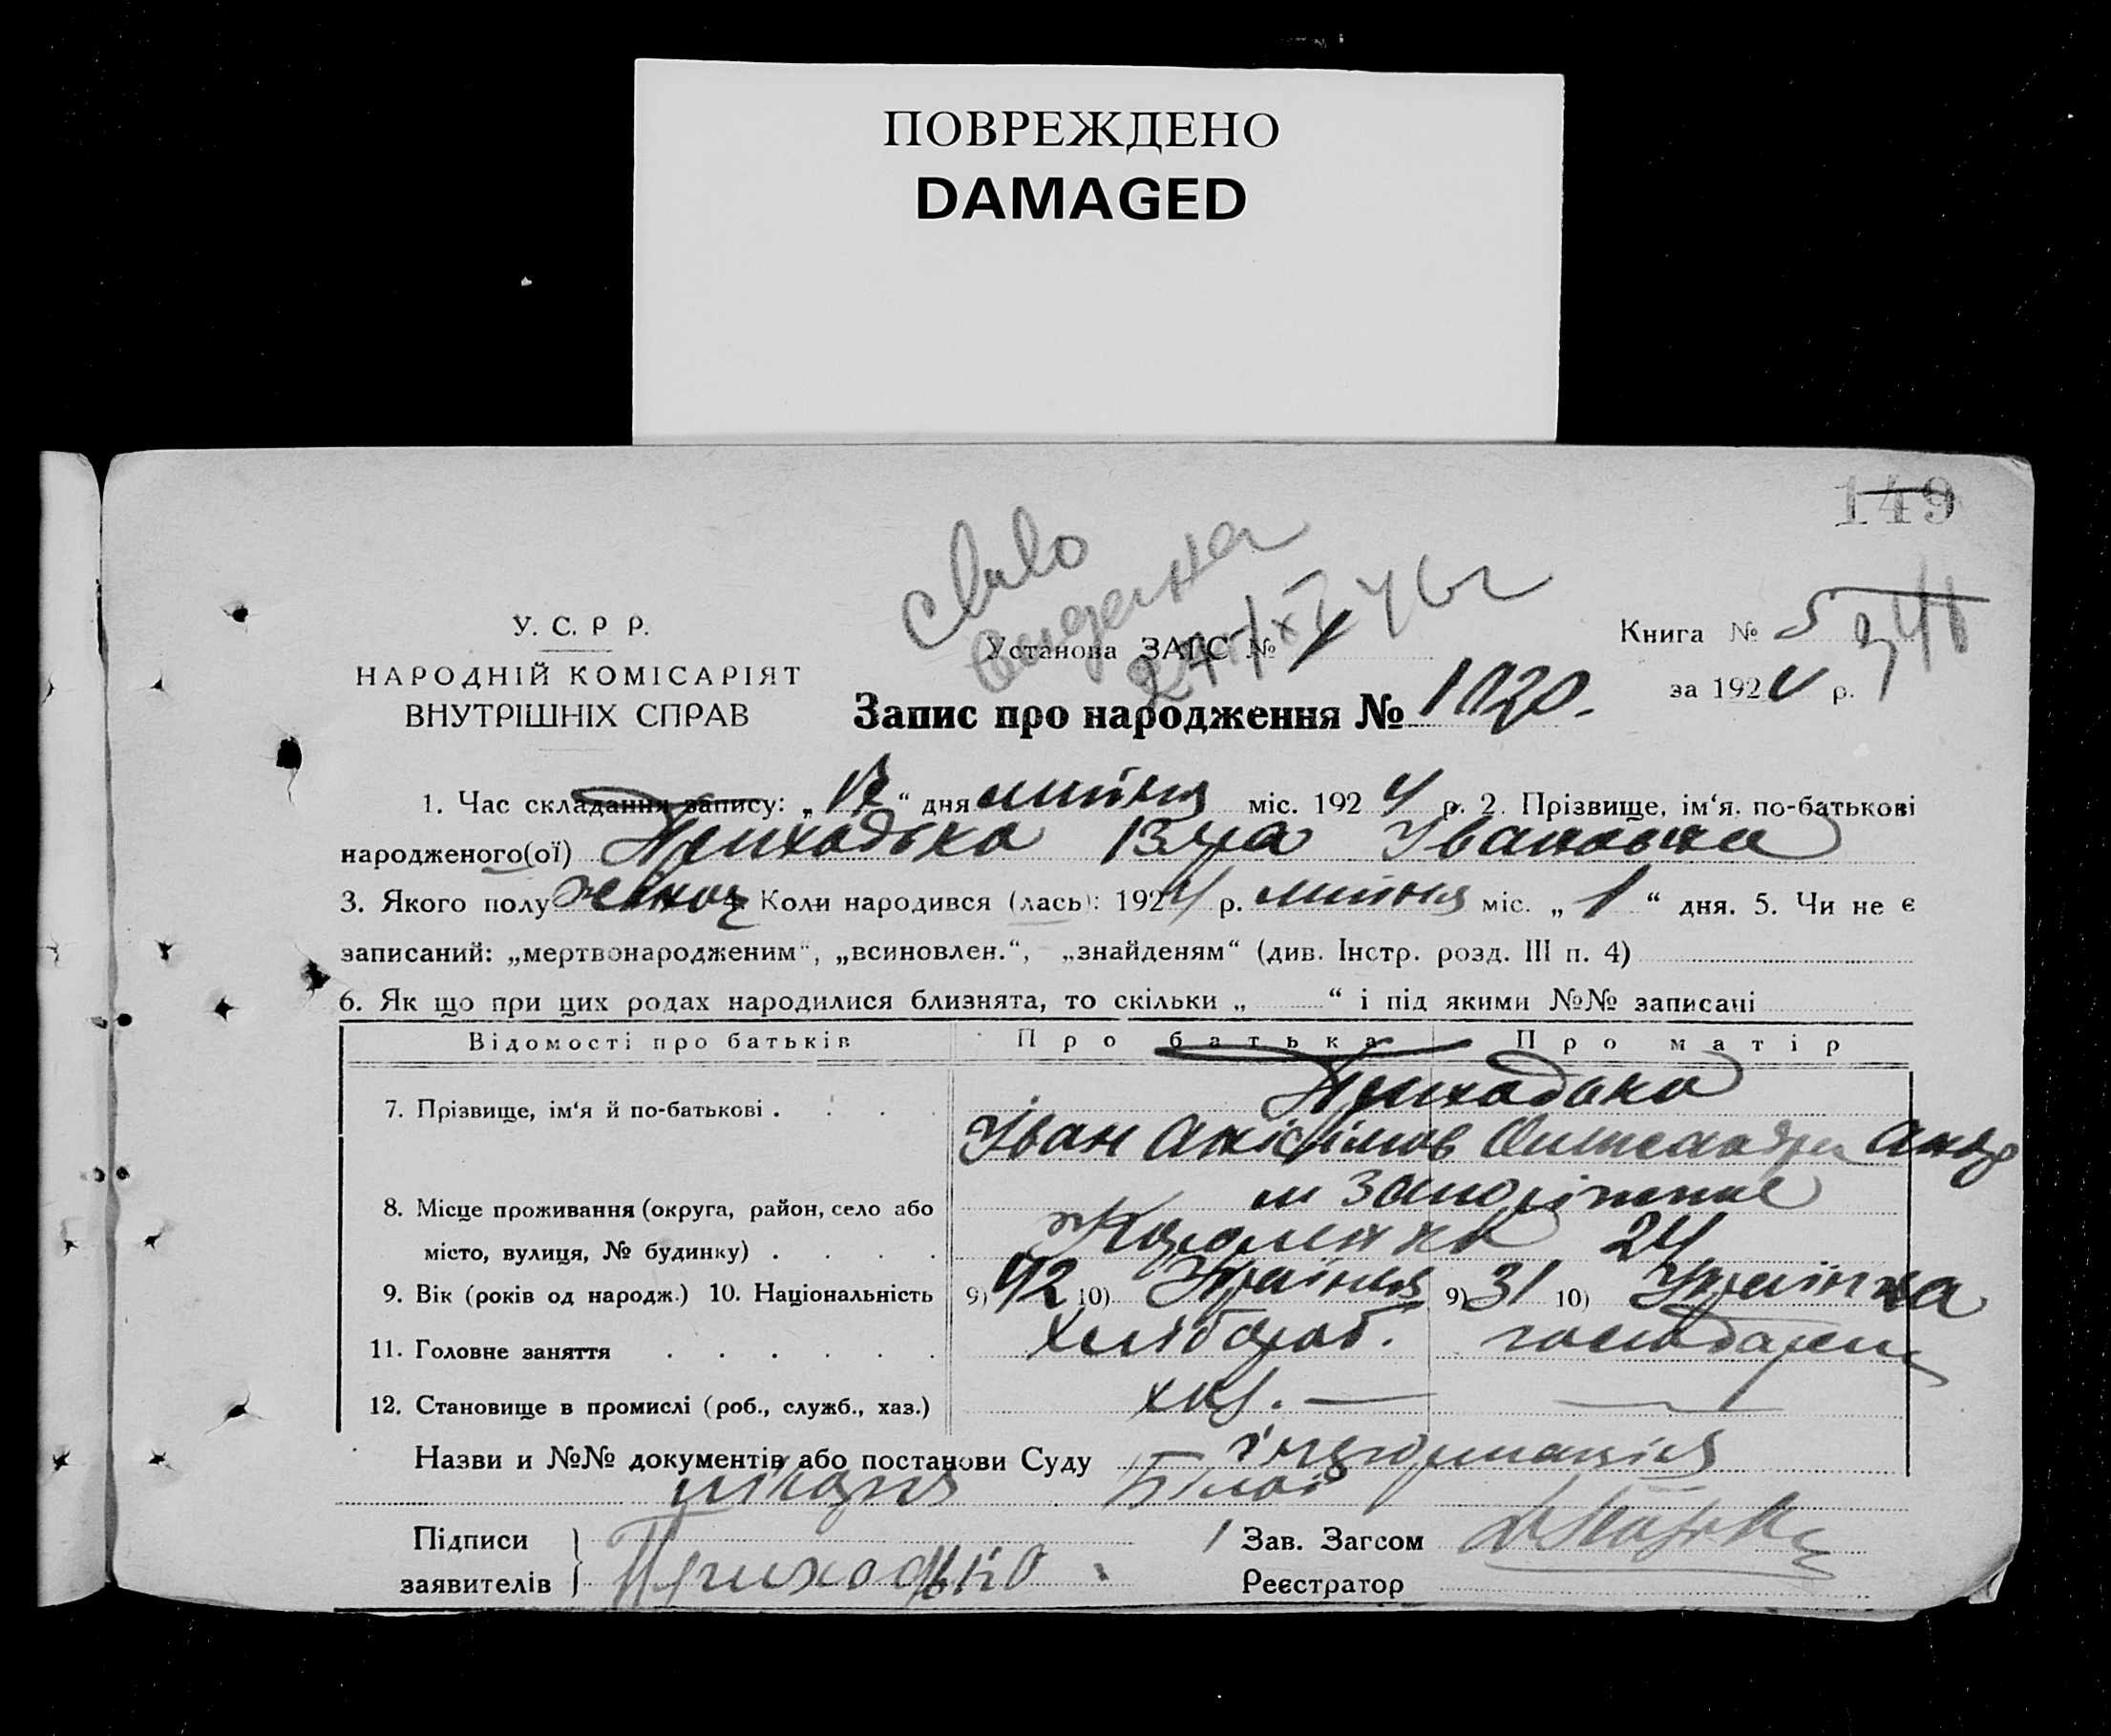 ПОВРЕЖДЕНО
DAMAGED
149
У. С. Р Р.
НАРОДНІЙ КОМІСАРІЯТ
ВНУТРІШНІХ СПРАВ
видана
Установа ЗАГС № 1
Книга № 5
за 1924 р.
Запис про народження № 1020.
1. Час складання запису: „ “ дня липня міс. 1924 р. 2. Прізвище, ім‘я. по-батькові
народженого(ої) Приходько Іванівна
3. Якого полу жіноч 4. Коли народився (лась): 1924 р. липня міс. „ 1 “ дня. 5. Чи не є
записаний: „мертвонародженим“, „всиновлен.“, „знайденям“ (див. Інстр. розд. III п. 4)
6. Як що при цих родах народилися близнята, то скільки „ “ і під якими №№ записані
Відомості про батьків Про батька Про матір
7. Прізвище, ім‘я й по-батькові . . . . Приходько
Іван Олександра Анд
8. Місце проживання (округа, район, село або м Запоріжжє
місто, вулиця, № будинку) . . . . 24
9. Вік (років од народж.) 10. Національність 9) 42 10) Українця 9) 31 10) Українка
11. Головне заняття . . . . . . хлібороб. господарен
12. Становище в промислі (роб., служб., хаз.) хаз. —
Назви и №№ документів або постанови Суду інформація
лікаря
Підписи
заявителів Приходько
Зав. Загсом
Реєстратор